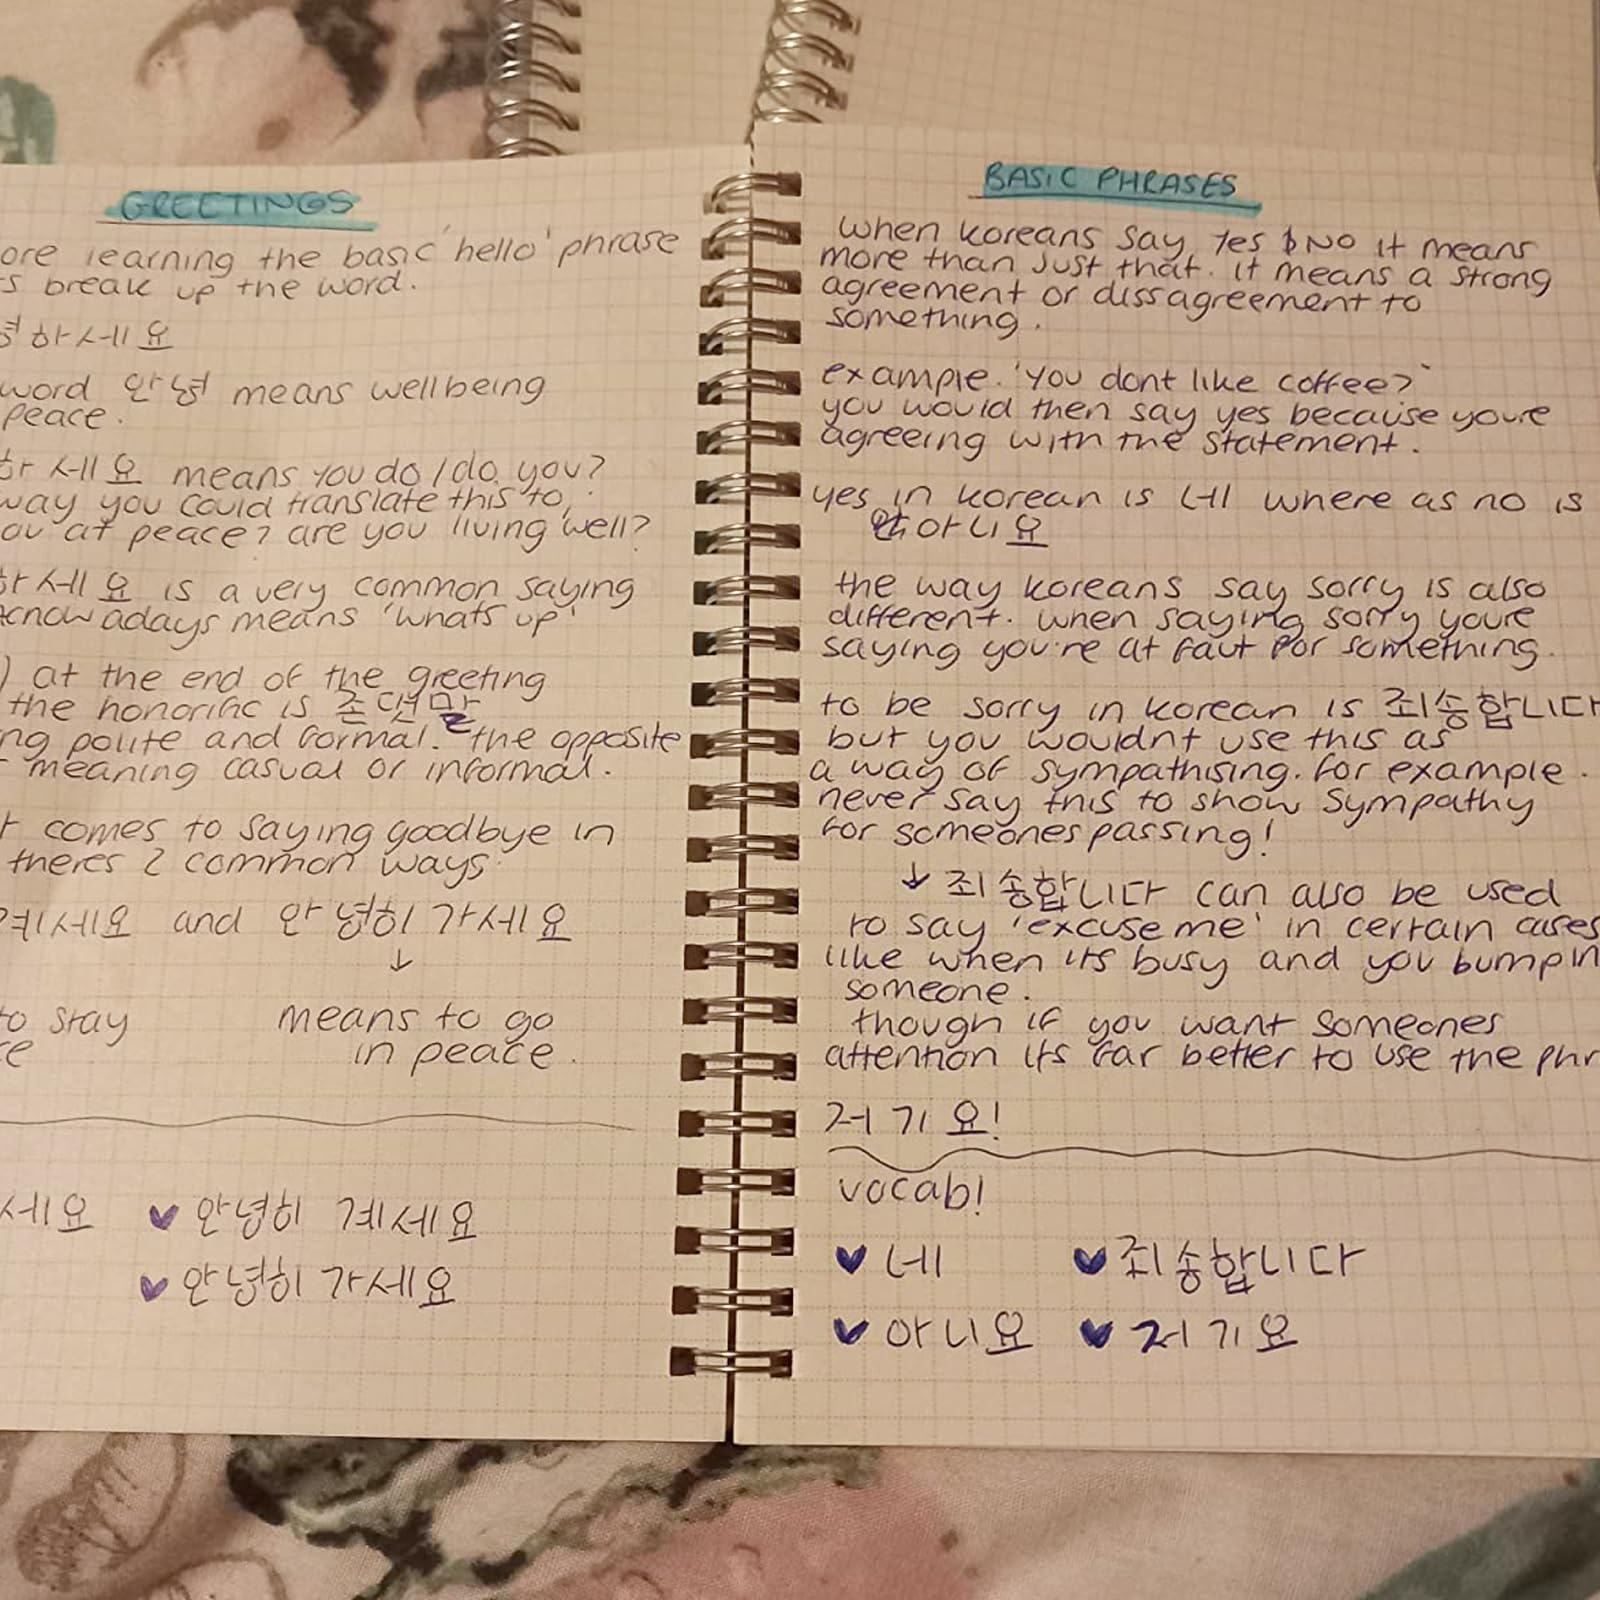 GREETINGS
ore learning the basic 'hello' phrase
s break up the word.
녕하세요
word 안녕 means wellbeing
peace.
하세요 means you do / do you?
way you could translate this to,
ou at peace? are you living well?
하세요 is a very common saying
nowadays means 'whats up'
) at the end of the greeting
the honorific is 존댓말
ng polite and formal. the opposite
meaning casual or informal.
t comes to saying goodbye in
theres 2 common ways.
계세요 and 안녕히 가세요
↓
to stay means to go
ce in peace.
세요 안녕히 계세요
안녕히 가세요
BASIC PHRASES
when koreans say yes & NO it means
more than just that. it means a strong
agreement or dissagreement to
something.
example. 'you dont like coffee?'
you would then say yes because youre
agreeing with the statement.
yes in korean is 네 where as no is
아니요
the way koreans say sorry is also
different. when saying sorry youre
saying you're at faut for something.
to be sorry in korean is 죄송합니다
but you wouldnt use this as
a way of sympathising. for example.
never say this to show sympathy
for someones passing!
↓ 죄송합니다 can also be used
to say 'excuse me' in certain cases
like when its busy and you bump in
someone.
though if you want someones
attention its far better to use the phr
저기요!
vocab!
네 죄송합니다
아니요 저기요